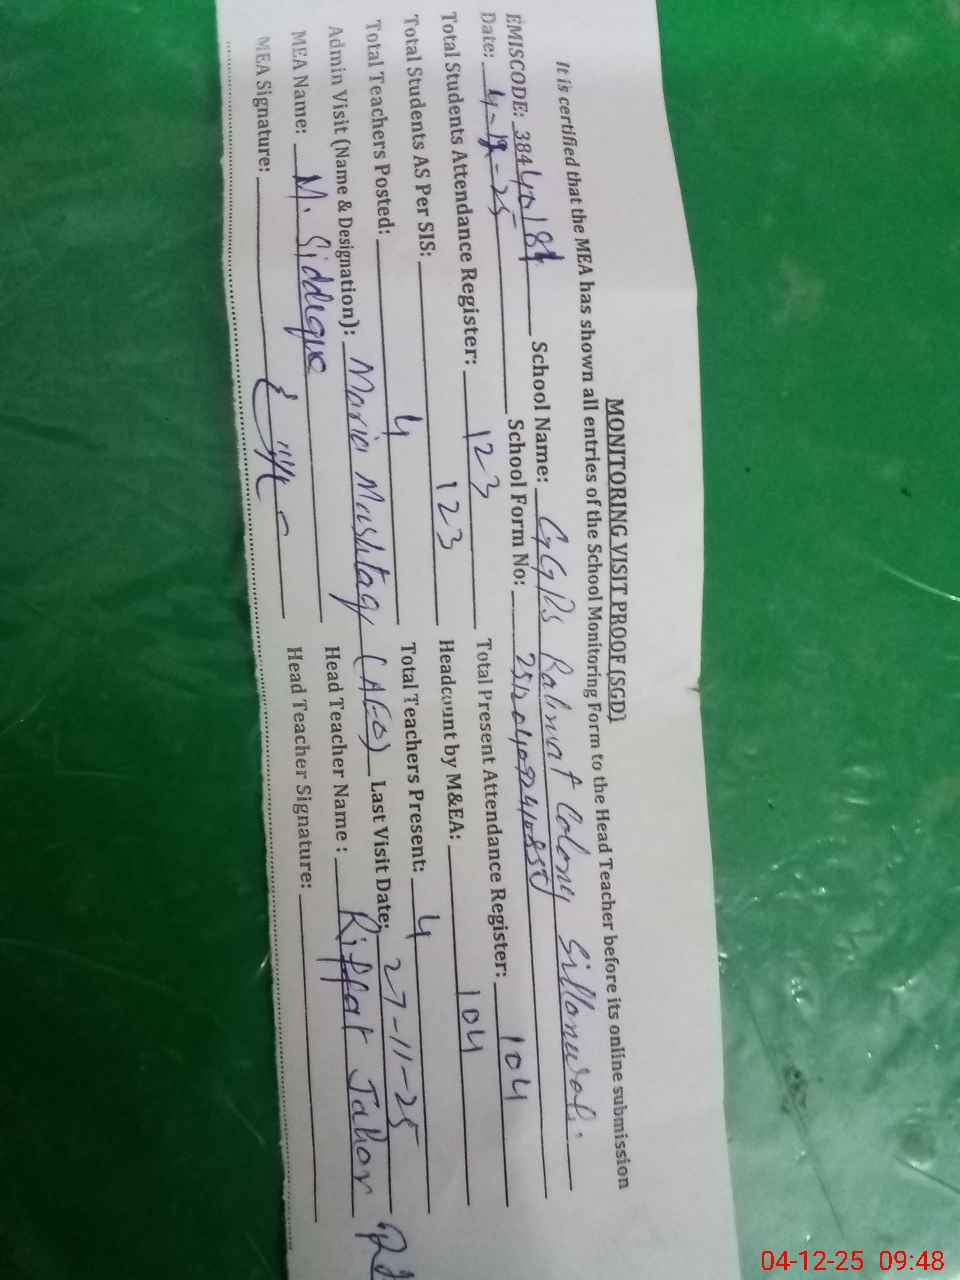 MONITORING VISIT PROOF (SGD)
It is certified that the MEA has shown all entries of the School Monitoring Form to the Head Teacher before its online submission
EMISCODE: 38440184 School Name: GGPS Rahmat Colony Sillanwali.
Date: 4-12-25 School Form No:
Total Students Attendance Register: 123 Total Present Attendance Register: 104
Total Students AS Per SIS: 123 Headcount by M&EA: 104
Total Teachers Posted: 4 Total Teachers Present: 4
Admin Visit (Name & Designation): Maria Mushtaq (AEO) Last Visit Date: 27-11-25
MEA Name: M. Siddique Head Teacher Name : Riffat Jahan
MEA Signature: Head Teacher Signature:
04-12-25 09:48